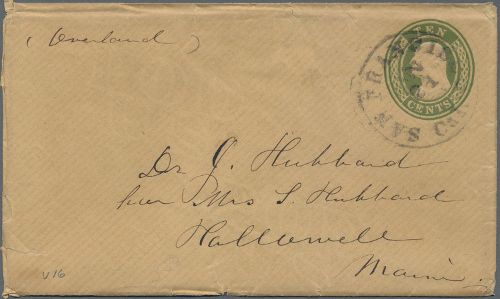 ( Overland )
TEN
CENTS
SAN FRANCIS
CAL
Dr J. Hubbard
Mrs S. Hubbard
Hallowell
Maine.
V16